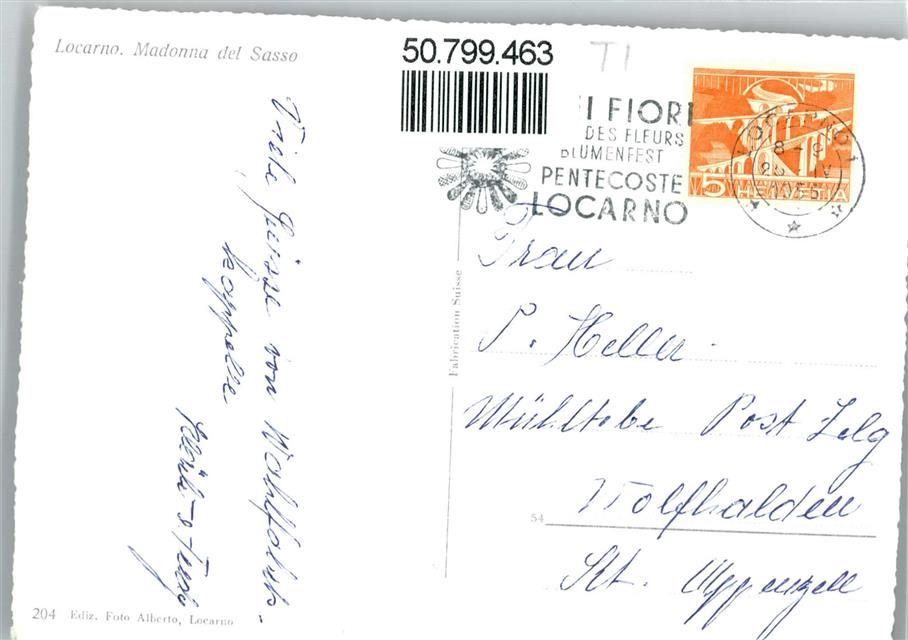 Locarno. Madonna del Sasso
50.799.463
T1
I FIORI
DES FLEURS
BLUMENFEST
PENTECOSTE
LOCARNO
5 HELVETIA
Viele Grüsse von Wahlfahrts-
kappelle
Frau
P. Heller.
Mühltobe Post Zelg
Wolfhalden
Kt. Appenzell
Fabrication Suisse
54
204 Ediz. Foto Alberto, Locarno